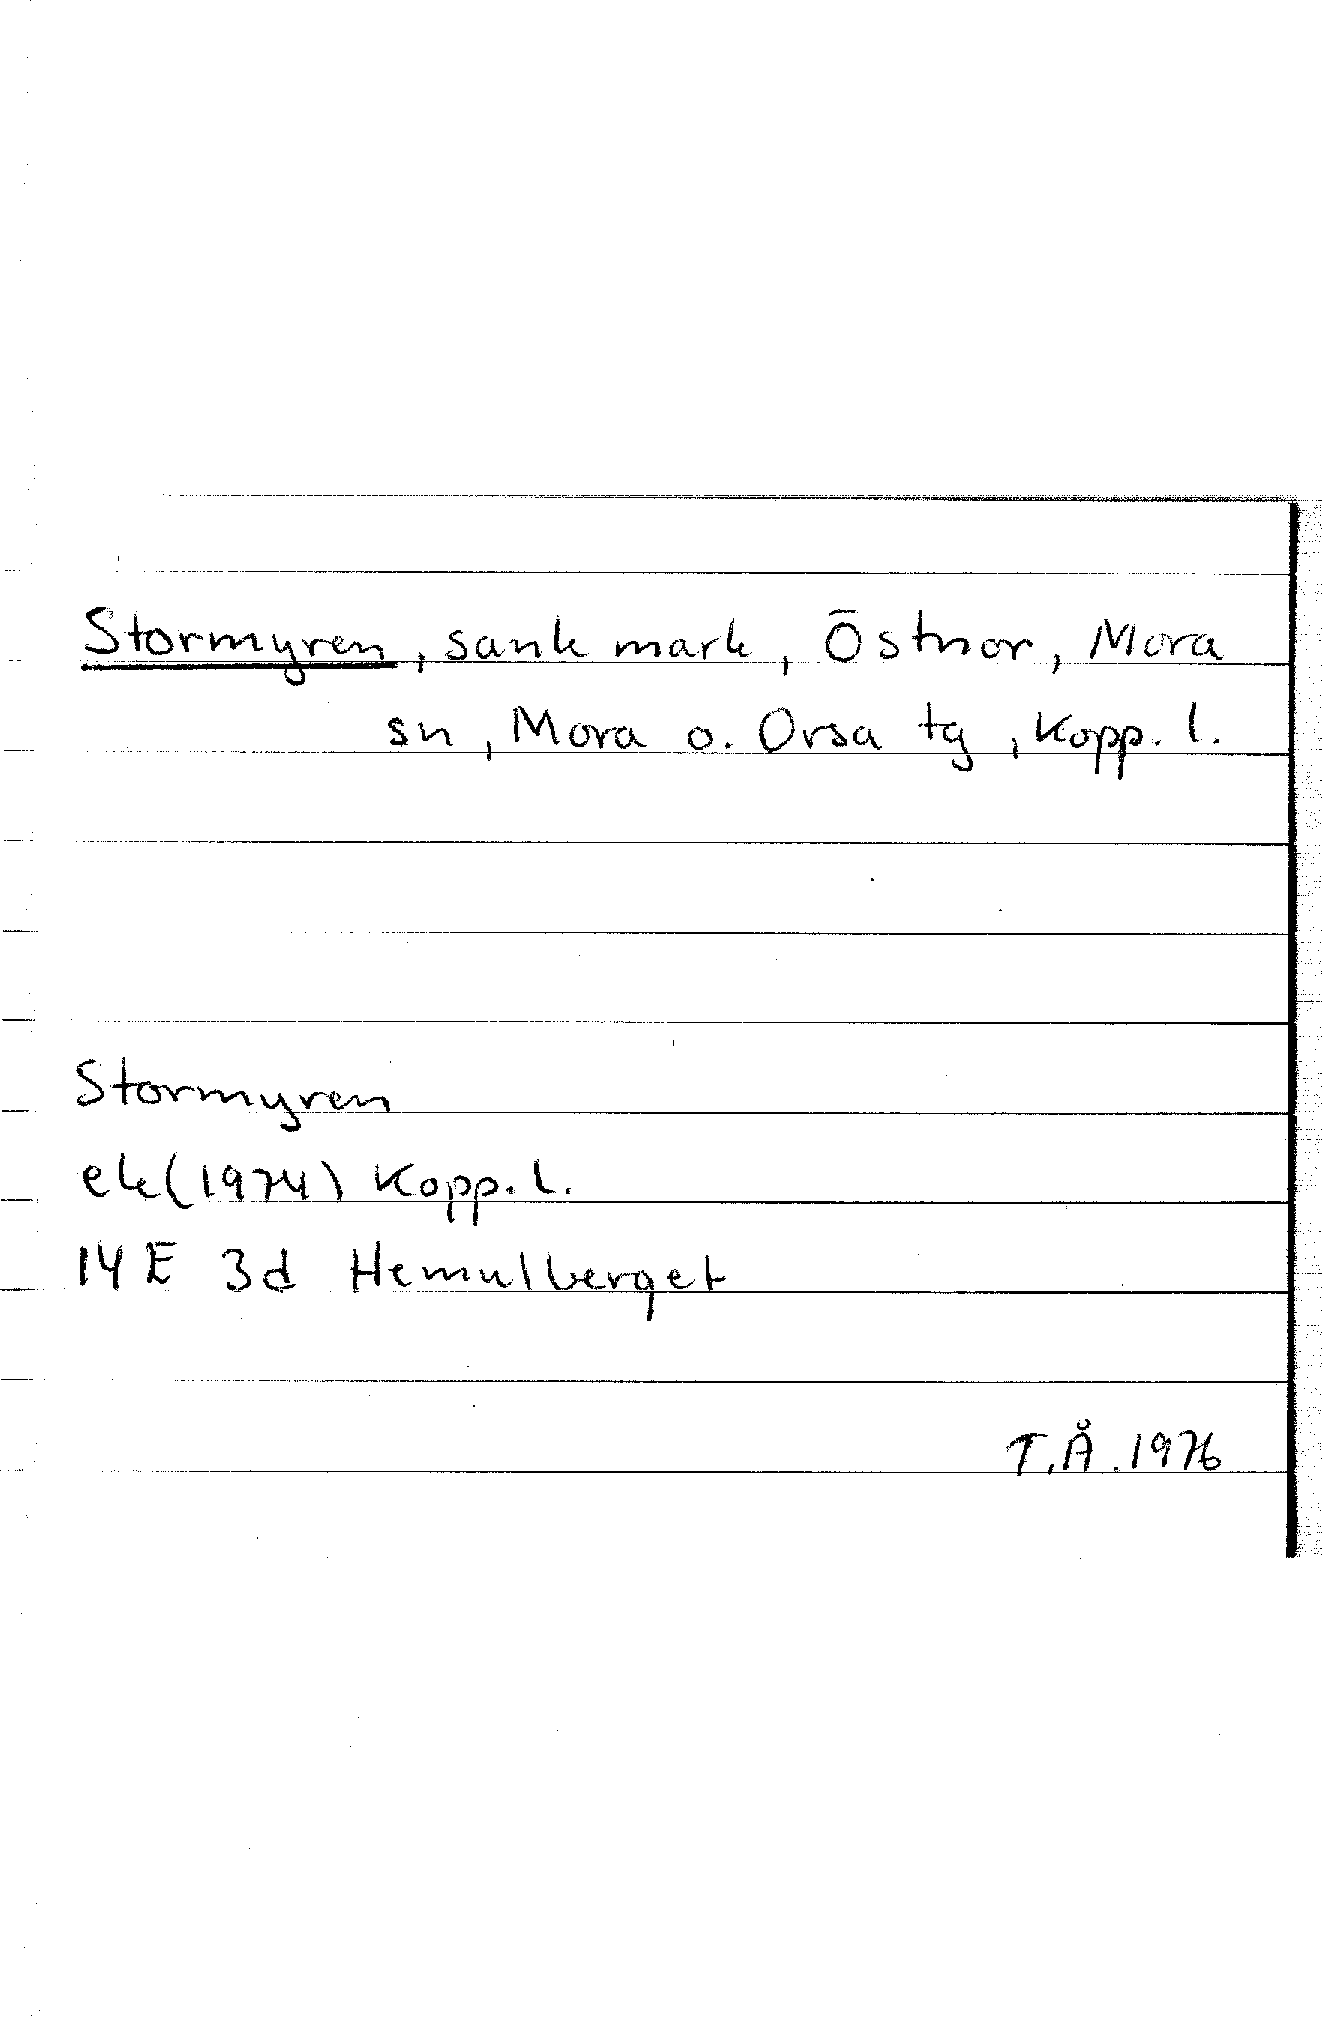 Stormyren, sank mark, Östnor, Mora
sn, Mora o. Orsa tg, Kopp. l.
Stormyren
ek(1974) Kopp. l.
14 E 3d Hemulberget
T.Å. 1976